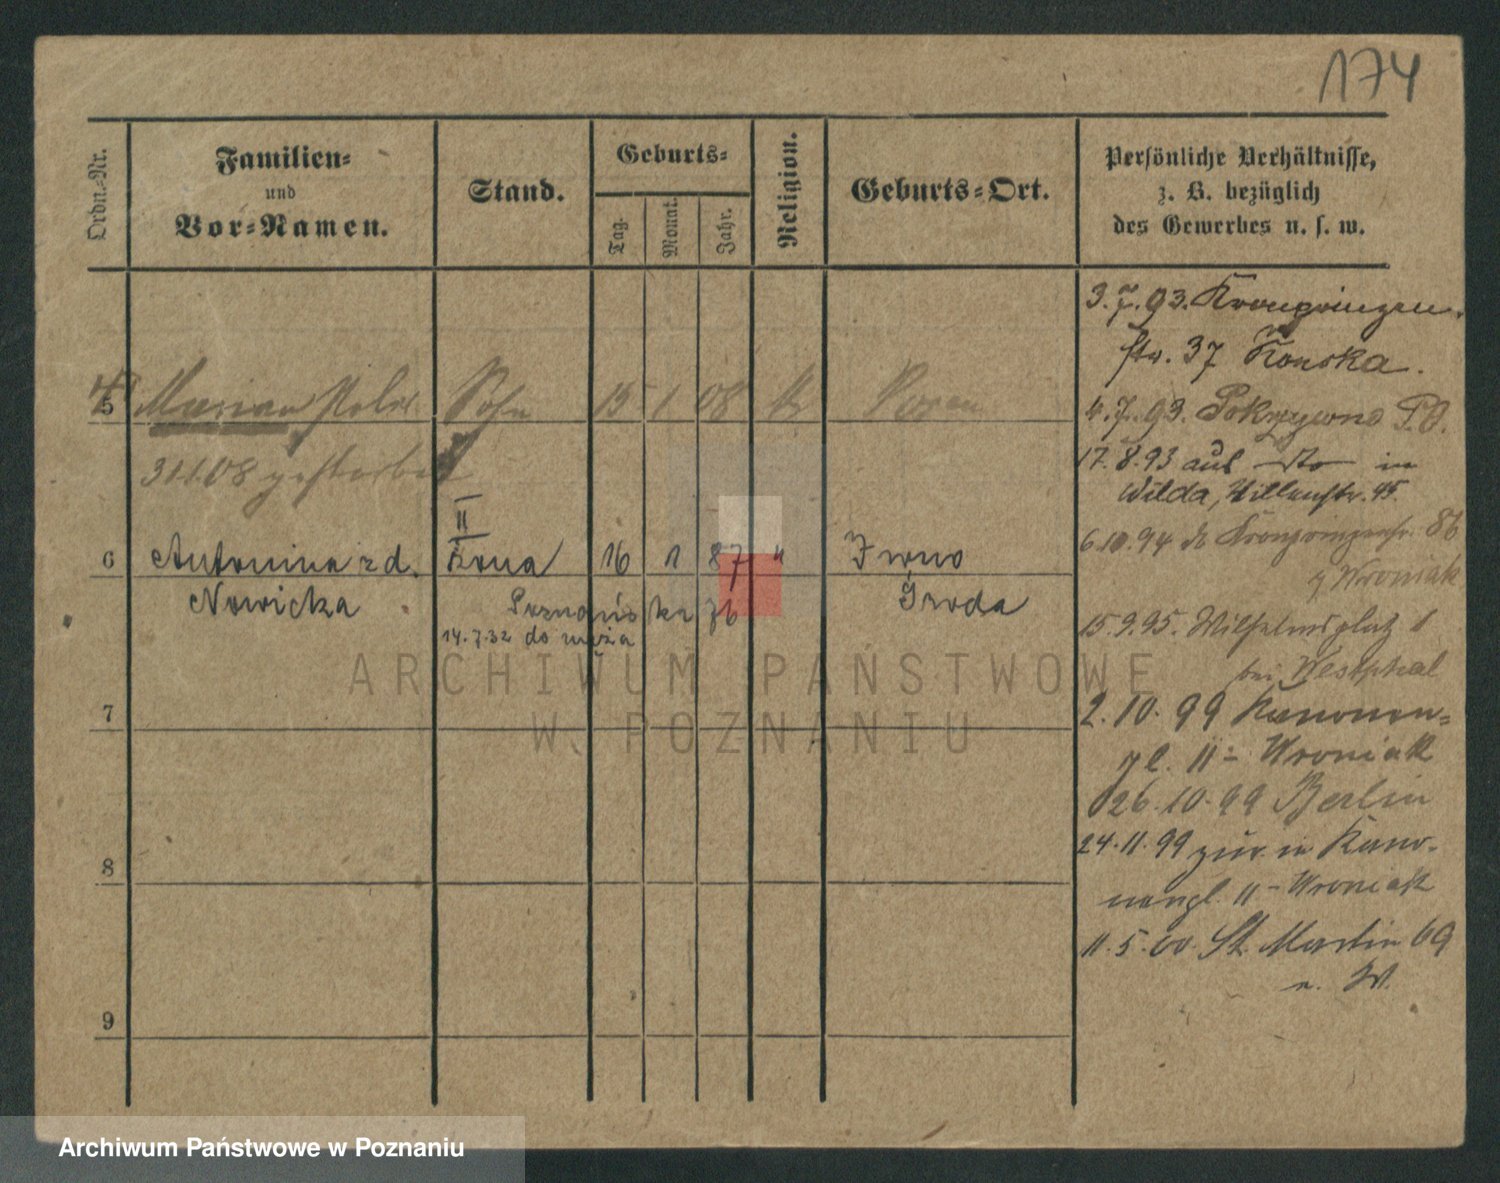 174
Ordn.-Nr.
Familien-
und
Vor-Namen.
Stand.
Geburts-
Tag.
Monat.
Jahr.
Religion.
Geburts-Ort.
Persönliche Verhältnisse,
z. B. bezüglich
des Gewerbes u. s. w.
3.7.93. Kronprinzen
str. 37 Konska.
5 Marian Sohn 15 1 08 k Posen
4.7.93. Pokrzywno P.O.
31.1.08 gestorben
17.8.93 aus in
Wilda, 45.
II
6 Antonina z d. żona 16 1 87 " Iwno
Nowicka Poznańska 76 Środa
14.7.32 do męża
6.10.94 Kronprinzenstr. 86
Wroniak
15.9.95. Wilhelmsplatz 1
bei Westphal
7
2.10.99 Kanonen-
pl. 11 - Wroniak
26.10.99 Berlin
24.11.99 zur. in Kano-
nenpl. 11 - Wroniak
8
11.5.00. St. Martin 69
W.
9
ARCHIWUM PAŃSTWOWE
W POZNANIU
Archiwum Państwowe w Poznaniu